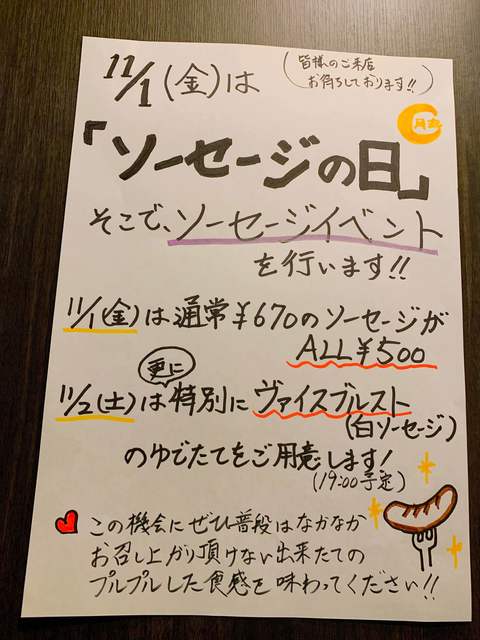 11/1(金)は
(皆様のご来店
お待ちしております!!)
「ソーセージの日」
そこで、ソーセージイベント
を行います!!
11/1(金)は通常¥670のソーセージが
ALL¥500
更に
11/2(土)は特別にヴァイスブルスト
(白ソーセージ)
のゆでたてをご用意します!
(19:00予定)
この機会にぜひ普段はなかなか
お召し上がり頂けない出来たての
プルプルした食感を味わってください!!